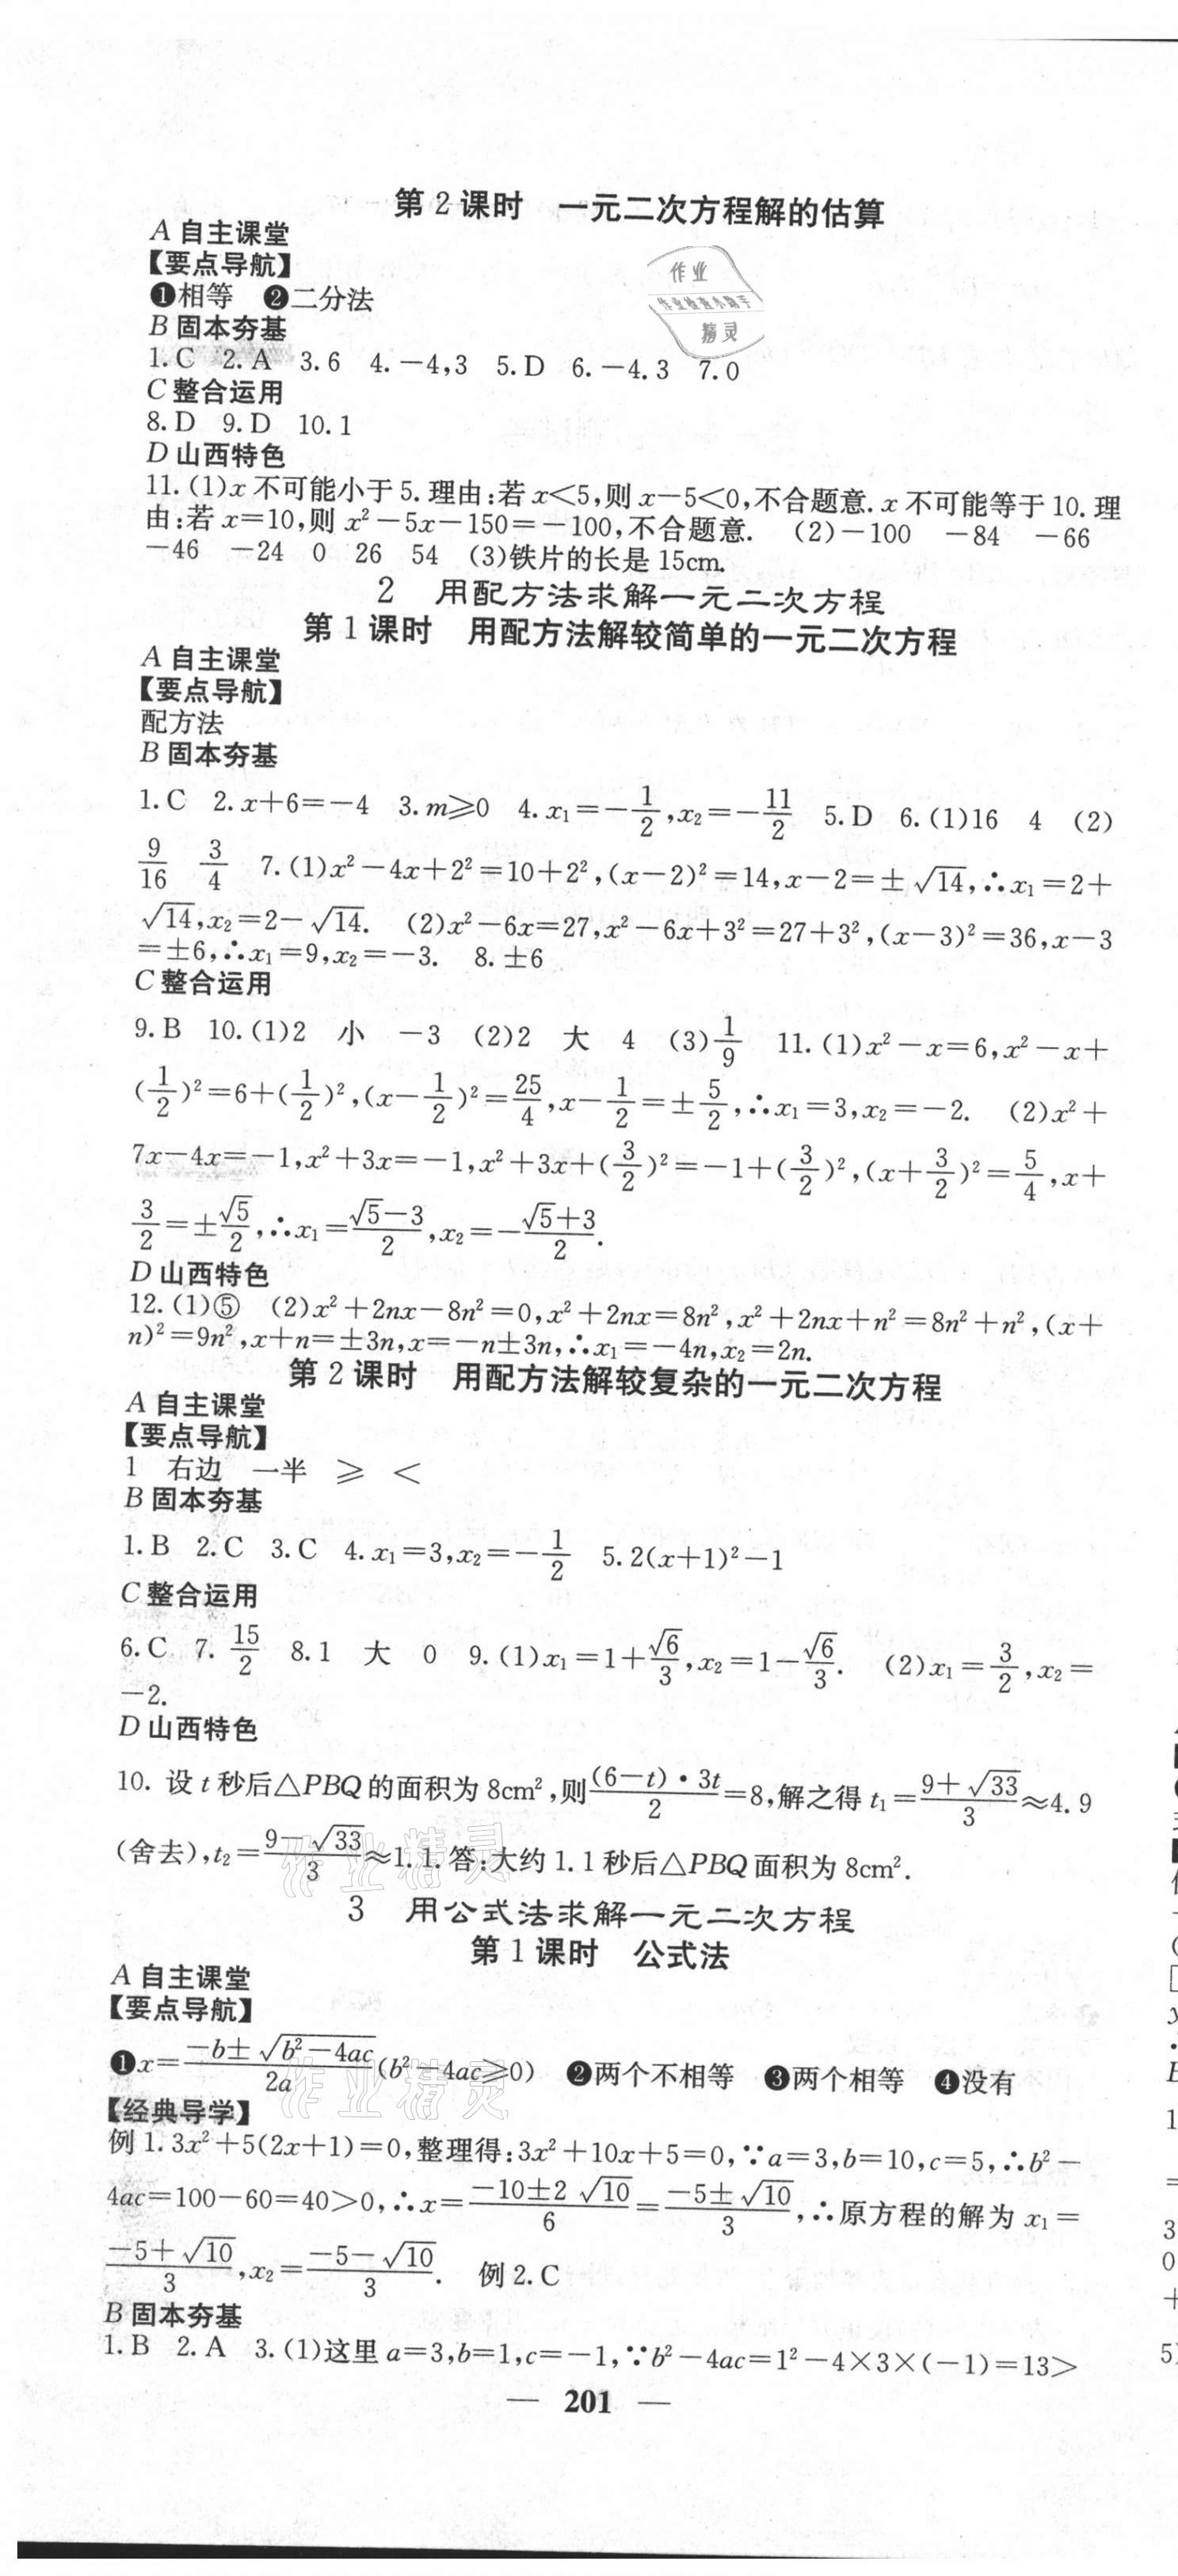 第2课时 一元二次方程解的估算
A 自主课堂
【要点导航】
❶相等 ❷二分法
作业
作业检查小助手
精灵
B 固本夯基
1.C 2.A 3.6 4.-4,3 5.D 6.-4.3 7.0
C 整合运用
8.D 9.D 10.1
D 山西特色
11.(1)x不可能小于5.理由:若x<5,则x-5<0,不合题意.x不可能等于10.理
由:若x=10,则x²-5x-150=-100,不合题意. (2)-100 -84 -66
-46 -24 0 26 54 (3)铁片的长是15cm.
2 用配方法求解一元二次方程
第1课时 用配方法解较简单的一元二次方程
A 自主课堂
【要点导航】
配方法
B 固本夯基
1.C 2.x+6=-4 3.m⩾0 4.x₁=-1/2,x₂=-11/2 5.D 6.(1)16 4 (2)
9/16 3/4 7.(1)x²-4x+2²=10+2²,(x-2)²=14,x-2=±√14,∴x₁=2+
√14,x₂=2-√14. (2)x²-6x=27,x²-6x+3²=27+3²,(x-3)²=36,x-3
=±6,∴x₁=9,x₂=-3. 8.±6
C 整合运用
9.B 10.(1)2 小 -3 (2)2 大 4 (3)1/9 11.(1)x²-x=6,x²-x+
(1/2)²=6+(1/2)²,(x-1/2)²=25/4,x-1/2=±5/2,∴x₁=3,x₂=-2. (2)x²+
7x-4x=-1,x²+3x=-1,x²+3x+(3/2)²=-1+(3/2)²,(x+3/2)²=5/4,x+
3/2=±√5/2,∴x₁=(√5-3)/2,x₂=-(√5+3)/2.
D 山西特色
12.(1)⑤ (2)x²+2nx-8n²=0,x²+2nx=8n²,x²+2nx+n²=8n²+n²,(x+
n)²=9n²,x+n=±3n,x=-n±3n,∴x₁=-4n,x₂=2n.
第2课时 用配方法解较复杂的一元二次方程
A 自主课堂
【要点导航】
1 右边 一半 ⩾ <
B 固本夯基
1.B 2.C 3.C 4.x₁=3,x₂=-1/2 5.2(x+1)²-1
C 整合运用
6.C 7.15/2 8.1 大 0 9.(1)x₁=1+√6/3,x₂=1-√6/3. (2)x₁=3/2,x₂=
-2.
D 山西特色
10. 设t秒后△PBQ的面积为8cm²,则(6-t)·3t/2=8,解之得t₁=(9+√33)/3≈4.9
(舍去),t₂=(9-√33)/3≈1.1.答:大约1.1秒后△PBQ面积为8cm².
作业精灵
3 用公式法求解一元二次方程
第1课时 公式法
A 自主课堂
【要点导航】
❶x=(-b±√(b²-4ac))/2a(b²-4ac⩾0) ❷两个不相等 ❸两个相等 ❹没有
作业精灵
【经典导学】
例1.3x²+5(2x+1)=0,整理得:3x²+10x+5=0,∵a=3,b=10,c=5,∴b²-
4ac=100-60=40>0,∴x=(-10±2√10)/6=(-5±√10)/3,∴原方程的解为x₁=
(-5+√10)/3,x₂=(-5-√10)/3. 例2.C
B 固本夯基
1.B 2.A 3.(1)这里a=3,b=1,c=-1,∵b²-4ac=1²-4×3×(-1)=13>
— 201 —